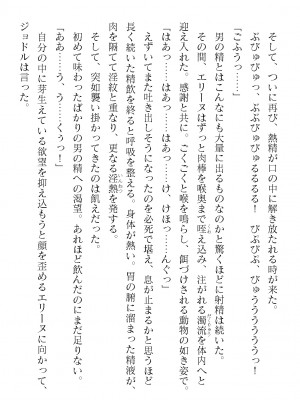 そして、ついに再び、熱精が口の中に解き放たれる時が来た。
ぶびゅびゅっ、ぶぶびゅびゅるるるる！　びぶびぶ、びゅうううううっ！
「ごふうっ……」
男の精とはこんなにも大量に出るものなのかと驚くほどに射精は続いた。
その間、エリーヌはずっと肉棒を喉奥まで咥え込み、注がれる濁流を体内へと
迎え入れた。感謝と共に。ごくごくと喉を鳴らし、餌づけされる動物の如き姿で。
「はあっ……はあっ……はあっ……、け、けほっ……んぐっ」
えずいてまた吐き出しそうになったのを必死で堪え、息が止まるかと思うほど
長く続いた精飲を終ると呼吸を整える。身体が熱い。胃の腑に溜まった精液が、
肉を隔てて淫紋と重なり、更なる淫熱を発する。
そして、突如襲い掛かってきたのは飢えだった。
初めて味わったばかりの男の精への渇望。あれほど飲んだのにまだ足りない。
「ああ……う、う……くうっ！」
自分の中に芽生えている欲望を抑え込もうと顔を歪めるエリーヌに向かって、
ジョドルは言った。